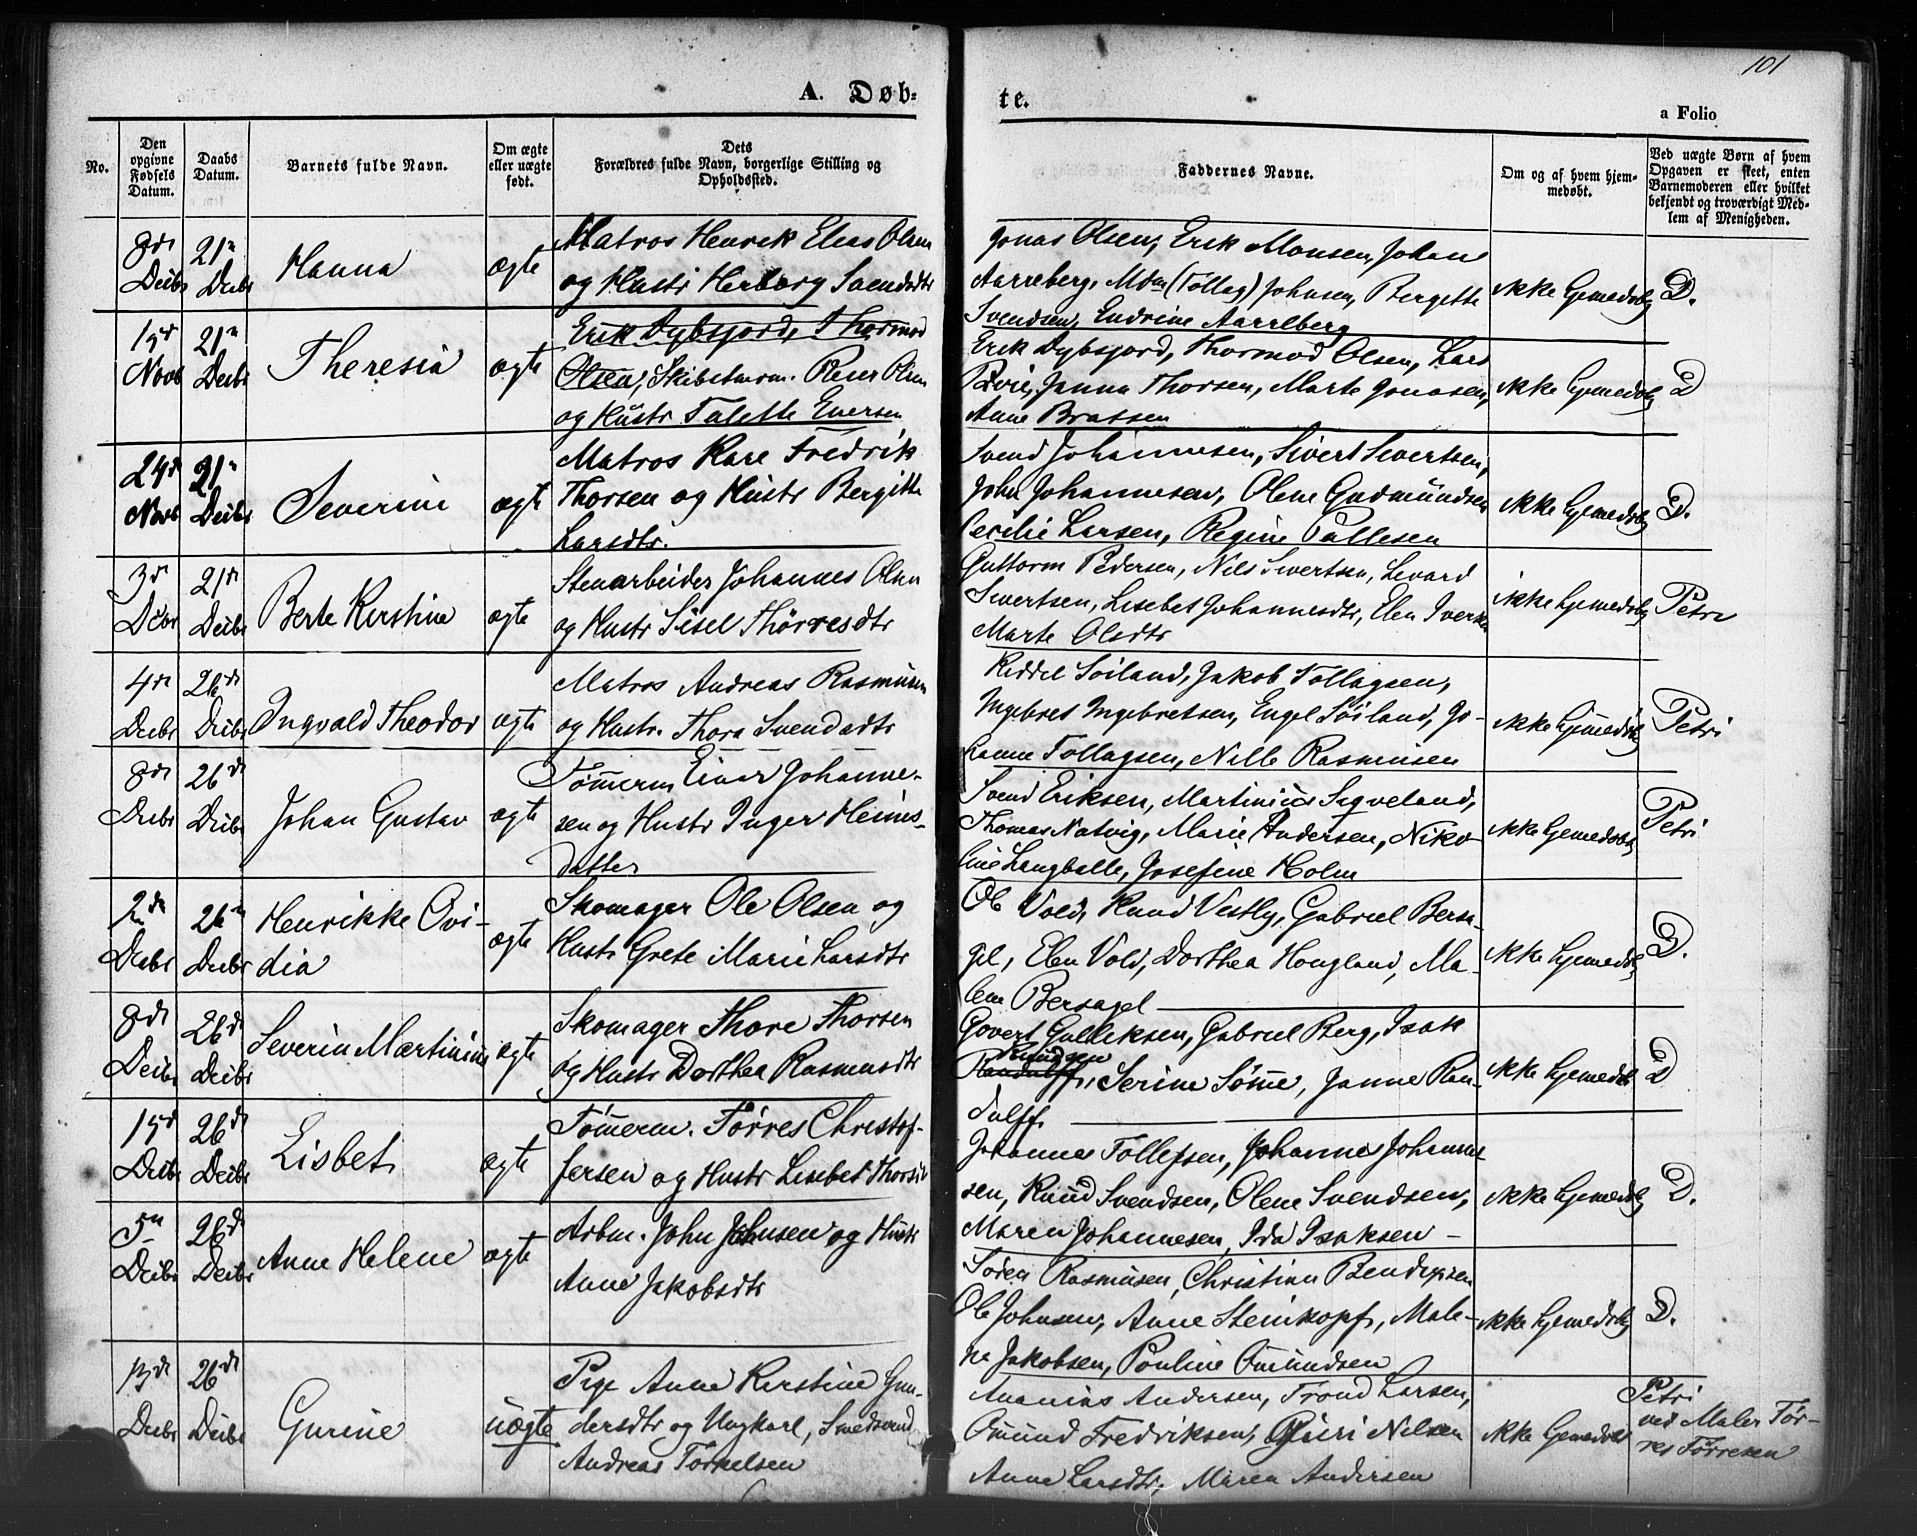 101
A. Døb=
te.
a Folio
No.
Den opgivne Fødsels Datum.
Daabs Datum.
Barnets fulde Navn.
Om ægte eller uægte født.
Dets Forældres fulde Navn, borgerlige Stilling og Opholdssted.
Faddernes Navne.
Om og af hvem hjemmedøbt.
Ved uægte Børn af hvem Opgaven er skeet, enten Barnemoderen eller hvilket bekjendt og troværdigt Medlem af Menigheden.
8de Decbr
21n Decbr
Hanna
ægte
Matros Henrik Elias Olsen
og Hustr Herborg Svendsdtr
Jonas Olsen, Erik Monsen, Johan
Aarreberg, Mdm (Tollag) Johnsen, Bergitte
Svendsen, Endrine Aarreberg
ikke hjemedøbt
D.
15d Novb
21n Decbr
Theresia
ægte
Erik Dybsjord, Thormod
Olsen, Skibstørm. Reier Olsen
og Hustr Talette Eversen
Erik Dybsjord, Thormod Olsen, Lars
Janna Thorsen, Marte Jonasen,
Anne Brassen
ikke hjemedøbt
D
24d Novb
21n Decbr
Severine
ægte
Matros Kare Fredrik
Thorsen og Hustr Bergitte
Larsdtr.
Svend Johannesen, Sivert Sivertsen,
John Johannesen, Olene Gudmundsen
Cecilie Larsen, Regine Pallesen
ikke hjemedøbt
D.
3d Decbr
21d Decbr
Berte Kirstine
ægte
Stenarbeider Johannes Olsen
og Hustr Sisel Thørresdtr
Guttorm Pedersen, Nils Sivertsen, Sivard
Sivertsen, Lisebet Johannesdtr, Elen Iversen
Marte Olsdtr
ikke hjemedøbt
Petri
4de Decbr
26de Decbr
Ingvald Theodor
ægte
Matros Andreas Rasmusen
og Hustr. Thora Svendsdtr
Kiddel Soiland, Jakob Tollagsen,
Ingebret Ingebretsen, Engel Soiland, Jo-
hanne Tollagsen, Nille Rasmusen
ikke hjemedøbt
Petri
8de Decbr
26d Decbr
Johan Gustav
ægte
Tømerm. Einar Johanne-
sen og Hustr Inger Heines-
datter
Svend Eriksen, Martinius Sigveland,
Thomas Natvig, Marie Andersen, Niko-
line Langballe, Josefine Holm
ikke hjemedøbt
Petri
2den Decbr
26n Decbr
Henrikke Ovi-
dia
ægte
Skomager Ole Olsen og
Hustr Grete Marie Larsdtr
Ole Vold, Knud Vestly, Gabriel Bersa-
gel, Elen Vold, Dorthea Hougland, Ma-
lene Bersagel
ikke hjemedøbt
D.
8de Decbr
26d Decbr
Severin Martinius
ægte
Skomager Thore Thorsen
og Hustr Dorthea Rasmusdtr
Govert Gulliksen, Gabriel Berg, Isak
Knudsen
Randulff, Serine Sømme, Janne Ran-
dulff
ikke hjemedøbt
D
15d Decbr
26d Decbr
Lisbet
ægte
Tømerm. Tørres Christof-
fersen og Hustr Lisebet Thorsdtr
Johannes Tollefsen, Johannes Johannes-
sen, Knud Svendsen, Olene Svendsen,
Maren Johannesen, Ida Isaksen
ikke hjemedøbt
D.
5n Decbr
26d Decbr
Anne Helene
ægte
Arbm. John Johnsen og Hustr
Anne Jakobsdtr
Søren Rasmusen, Christian Bendixsen
Ole Johnsen, Anne Steinkopf, Male-
ne Jakobsen, Pouline Omundsen
ikke hjemedøbt
D.
13de Decbr
26de Decbr
Gurine
uægte
Pige Anne Kirstine Gun-
dersdtr og Ungkarl, Smedsvend
Andreas Torkelsen
Ananias Andersen, Trond Larsen,
Omund Fredriksen, Guri Nilsen
Anne Larsdtr, Maren Andersen
ikke hjemedøbt
Petri
ved Maler Tør-
res Tørresen